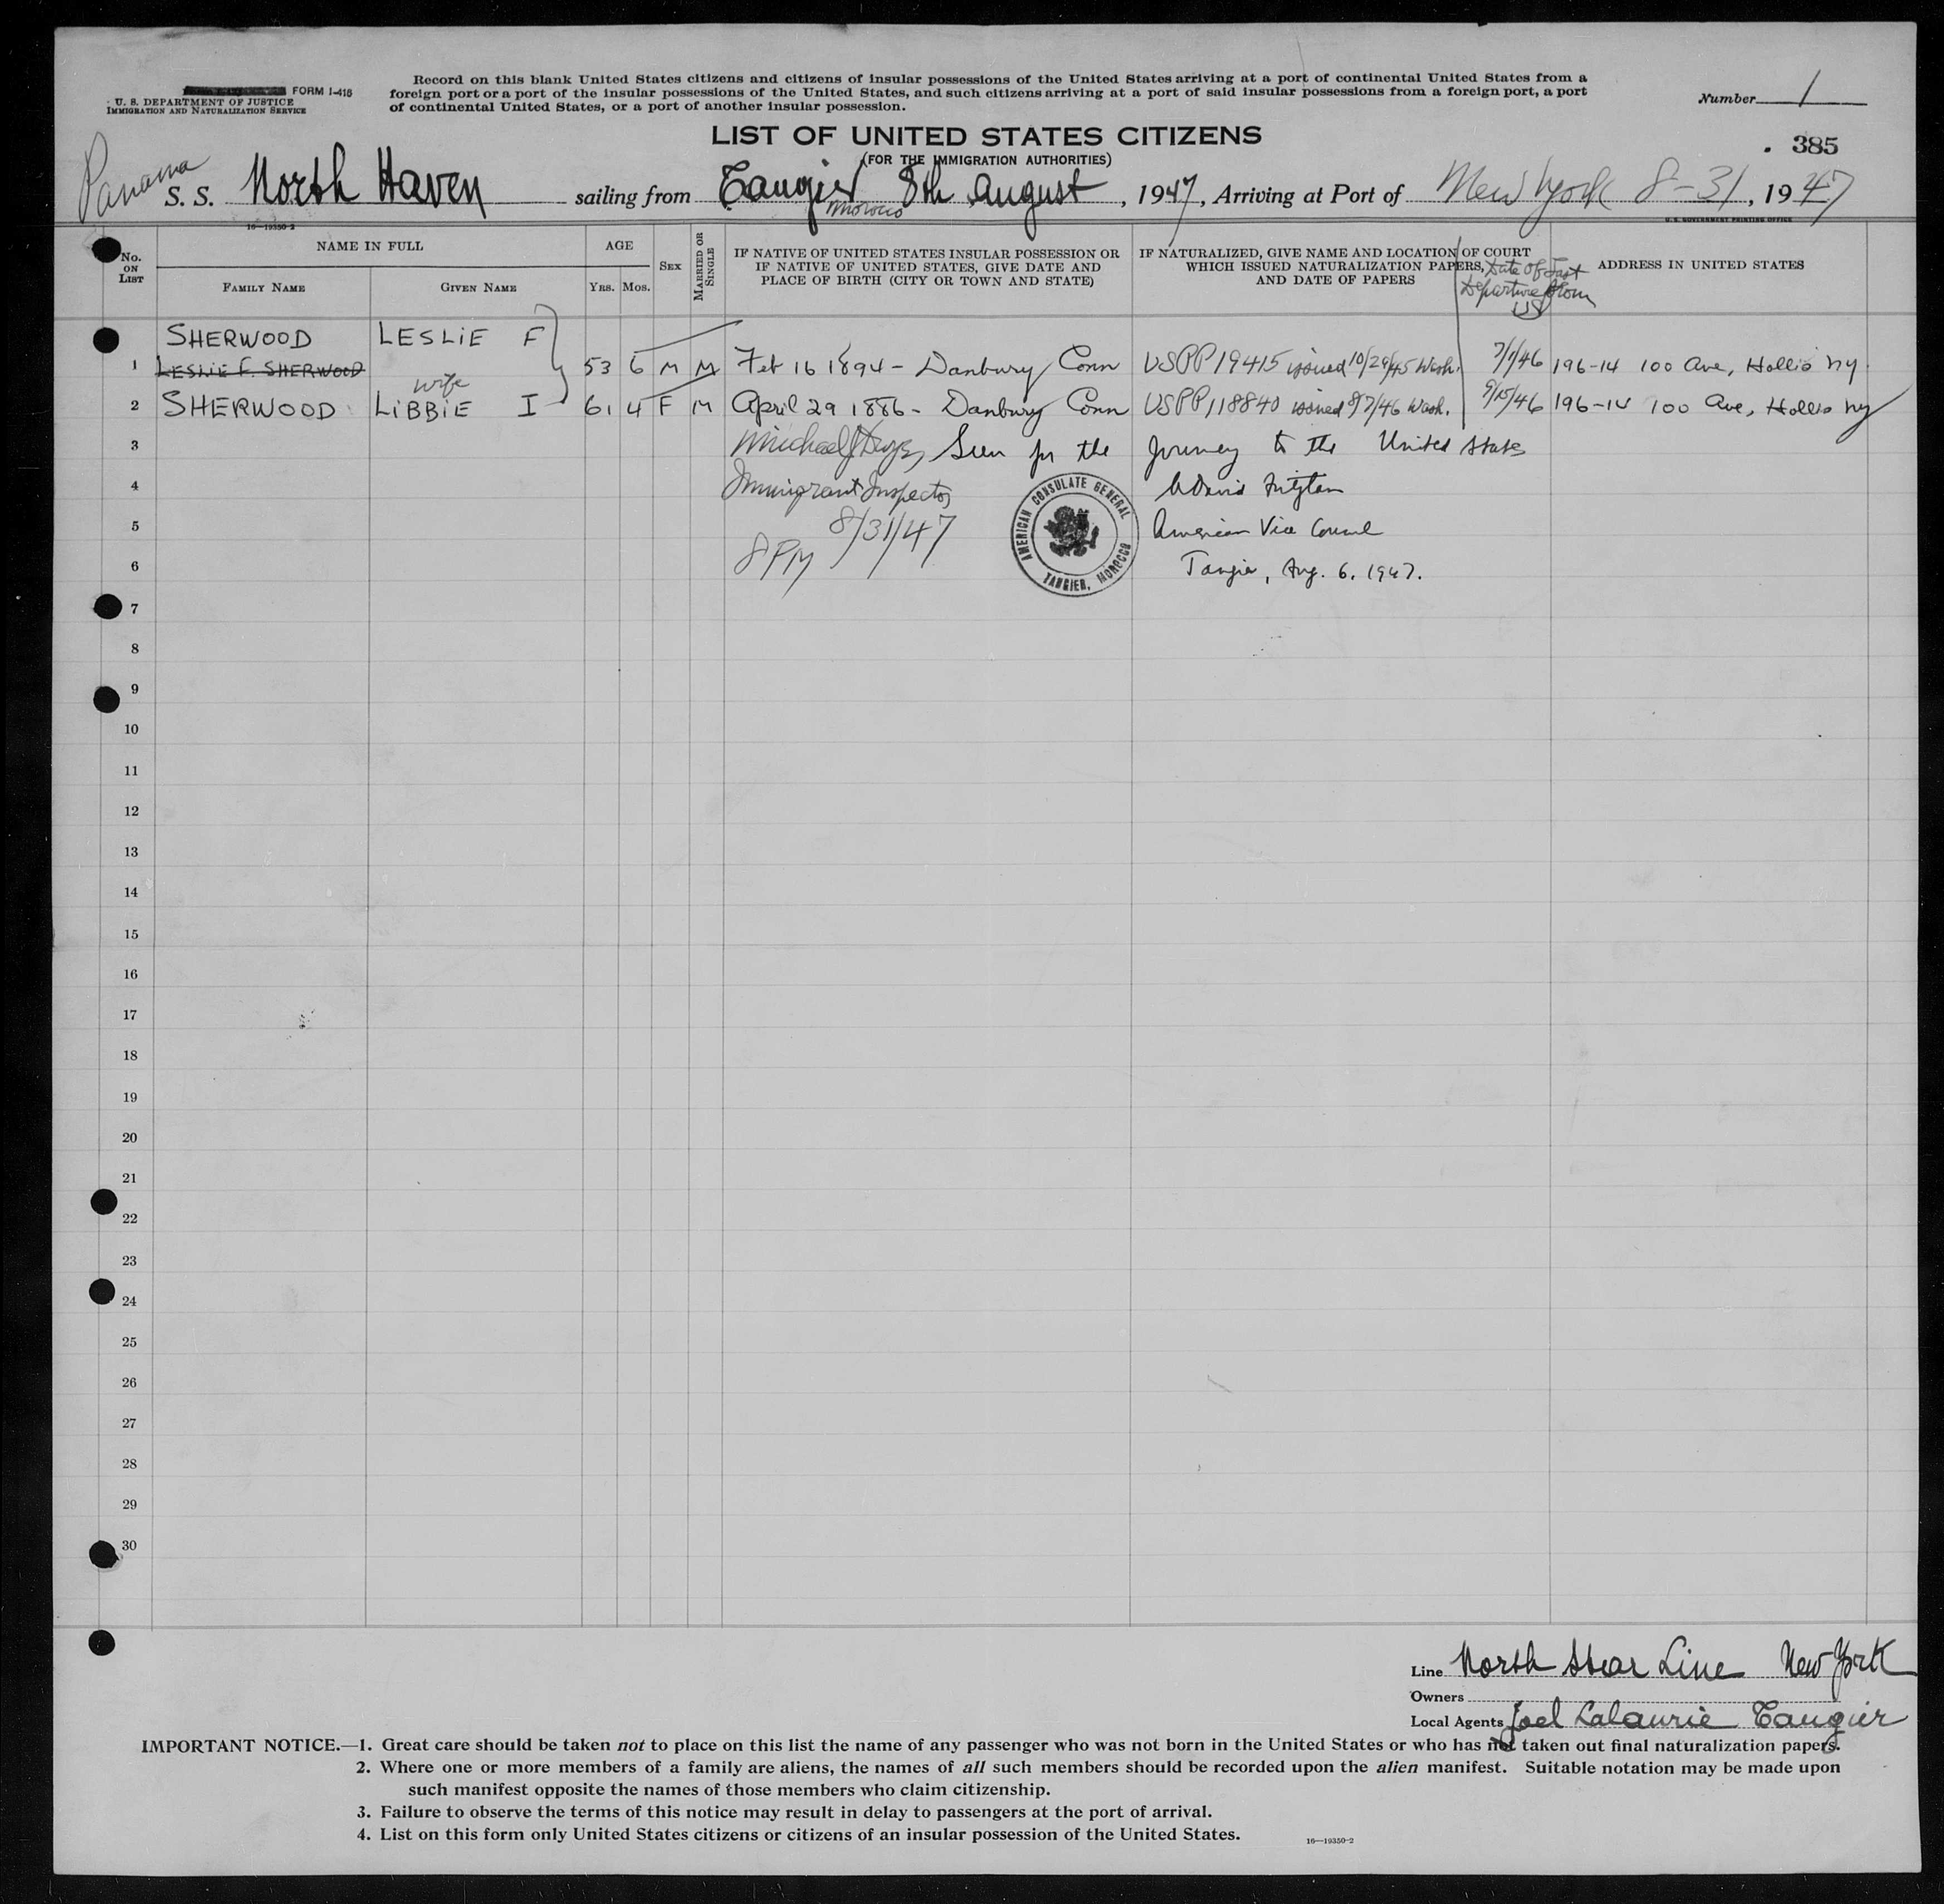 FORM I-416
U. S. DEPARTMENT OF JUSTICE
IMMIGRATION AND NATURALIZATION SERVICE
Record on this blank United States citizens and citizens of insular possessions of the United States arriving at a port of continental United States from a
foreign port or a port of the insular possessions of the United States, and such citizens arriving at a port of said insular possessions from a foreign port, a port
of continental United States, or a port of another insular possession.
Number 1
LIST OF UNITED STATES CITIZENS
(FOR THE IMMIGRATION AUTHORITIES)
385
Panama
S. S. North Haven sailing from Tangier 8th August, 1947, Arriving at Port of New York 8-31, 1947
Morocco
16—19350-2
U. S. GOVERNMENT PRINTING OFFICE
No. ON LIST
NAME IN FULL
FAMILY NAME
GIVEN NAME
AGE
YRS.
MOS.
SEX
MARRIED OR SINGLE
IF NATIVE OF UNITED STATES INSULAR POSSESSION OR
IF NATIVE OF UNITED STATES, GIVE DATE AND
PLACE OF BIRTH (CITY OR TOWN AND STATE)
IF NATURALIZED, GIVE NAME AND LOCATION OF COURT
WHICH ISSUED NATURALIZATION PAPERS,
AND DATE OF PAPERS
Date of Last
Departure from
US
ADDRESS IN UNITED STATES
SHERWOOD LESLIE F
1 LESLIE F. SHERWOOD 53 6 M M Feb 16 1894 - Danbury Conn USPP 19415 issued 10/29/45 Wash. 7/1/46 196-14 100 Ave, Hollis NY
wife
2 SHERWOOD LIBBIE I 61 4 F M April 29 1886 - Danbury Conn USPP 118840 issued 8/7/46 Wash. 9/15/46 196-14 100 Ave, Hollis NY
3 Michael Seen for the Journey to the United States
4 Immigrant Inspector David
5 8/31/47 American Vice Consul
6 8 PM Tangier, Aug. 6, 1947.
AMERICAN CONSULATE GENERAL
TANGIER, MOROCCO
7
8
9
10
11
12
13
14
15
16
17
18
19
20
21
22
23
24
25
26
27
28
29
30
Line North Star Line New York
Owners
Local Agents Joel Lalaurie Tangier
IMPORTANT NOTICE.—1. Great care should be taken not to place on this list the name of any passenger who was not born in the United States or who has not taken out final naturalization papers.
2. Where one or more members of a family are aliens, the names of all such members should be recorded upon the alien manifest. Suitable notation may be made upon
such manifest opposite the names of those members who claim citizenship.
3. Failure to observe the terms of this notice may result in delay to passengers at the port of arrival.
4. List on this form only United States citizens or citizens of an insular possession of the United States.
16—19350-2